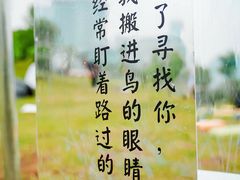 了寻找你，
我搬进鸟的眼睛
经常盯着路过的